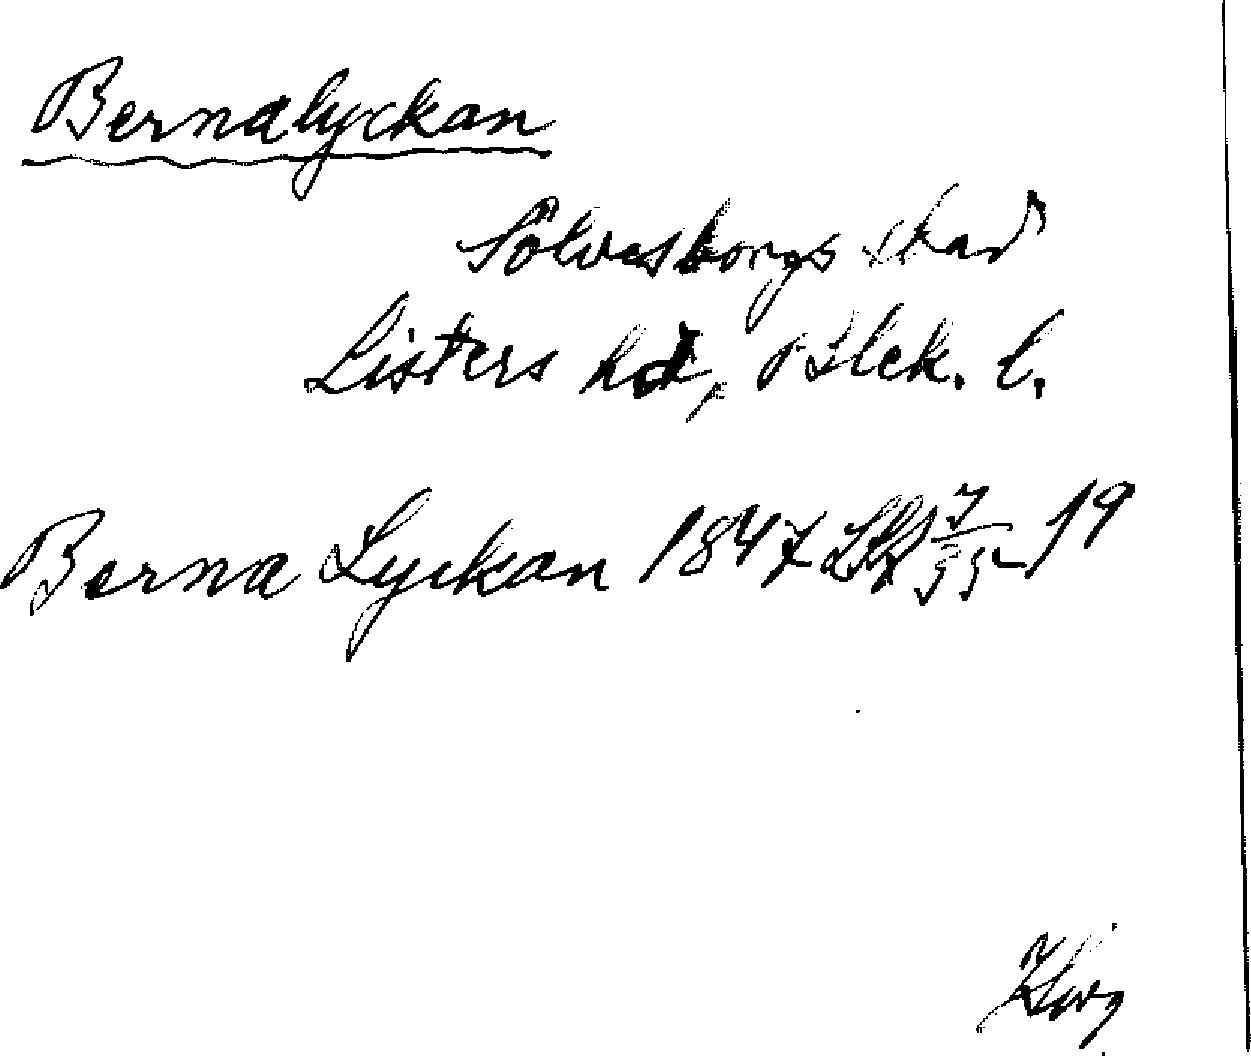 Bernalyckan
Sölvesborgs stad
Listers hd, Blek. l.
Berna Lyckan 1847 19